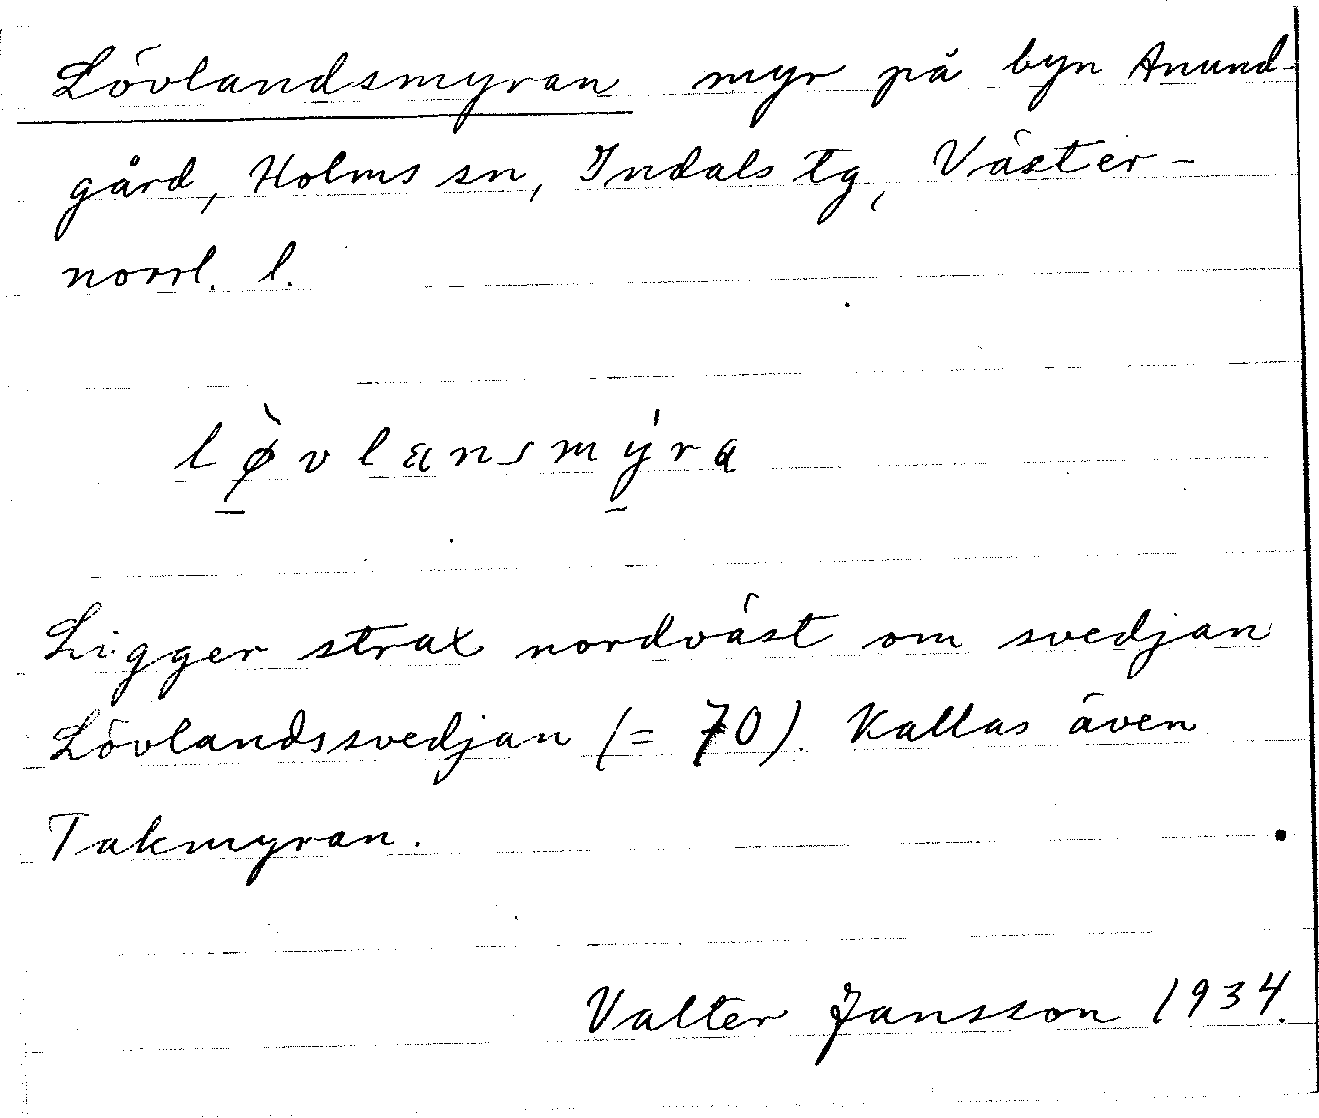 Lövlandsmyran myr på byn Anund-
gård, Holms sn, Indals tg, Väster-
norrl. l.
lø̀vlansmýra
Ligger strax nordväst om svedjan
Lövlandssvedjan (= 70). Kallas även
Takmyran.
Valter Jansson 1934.